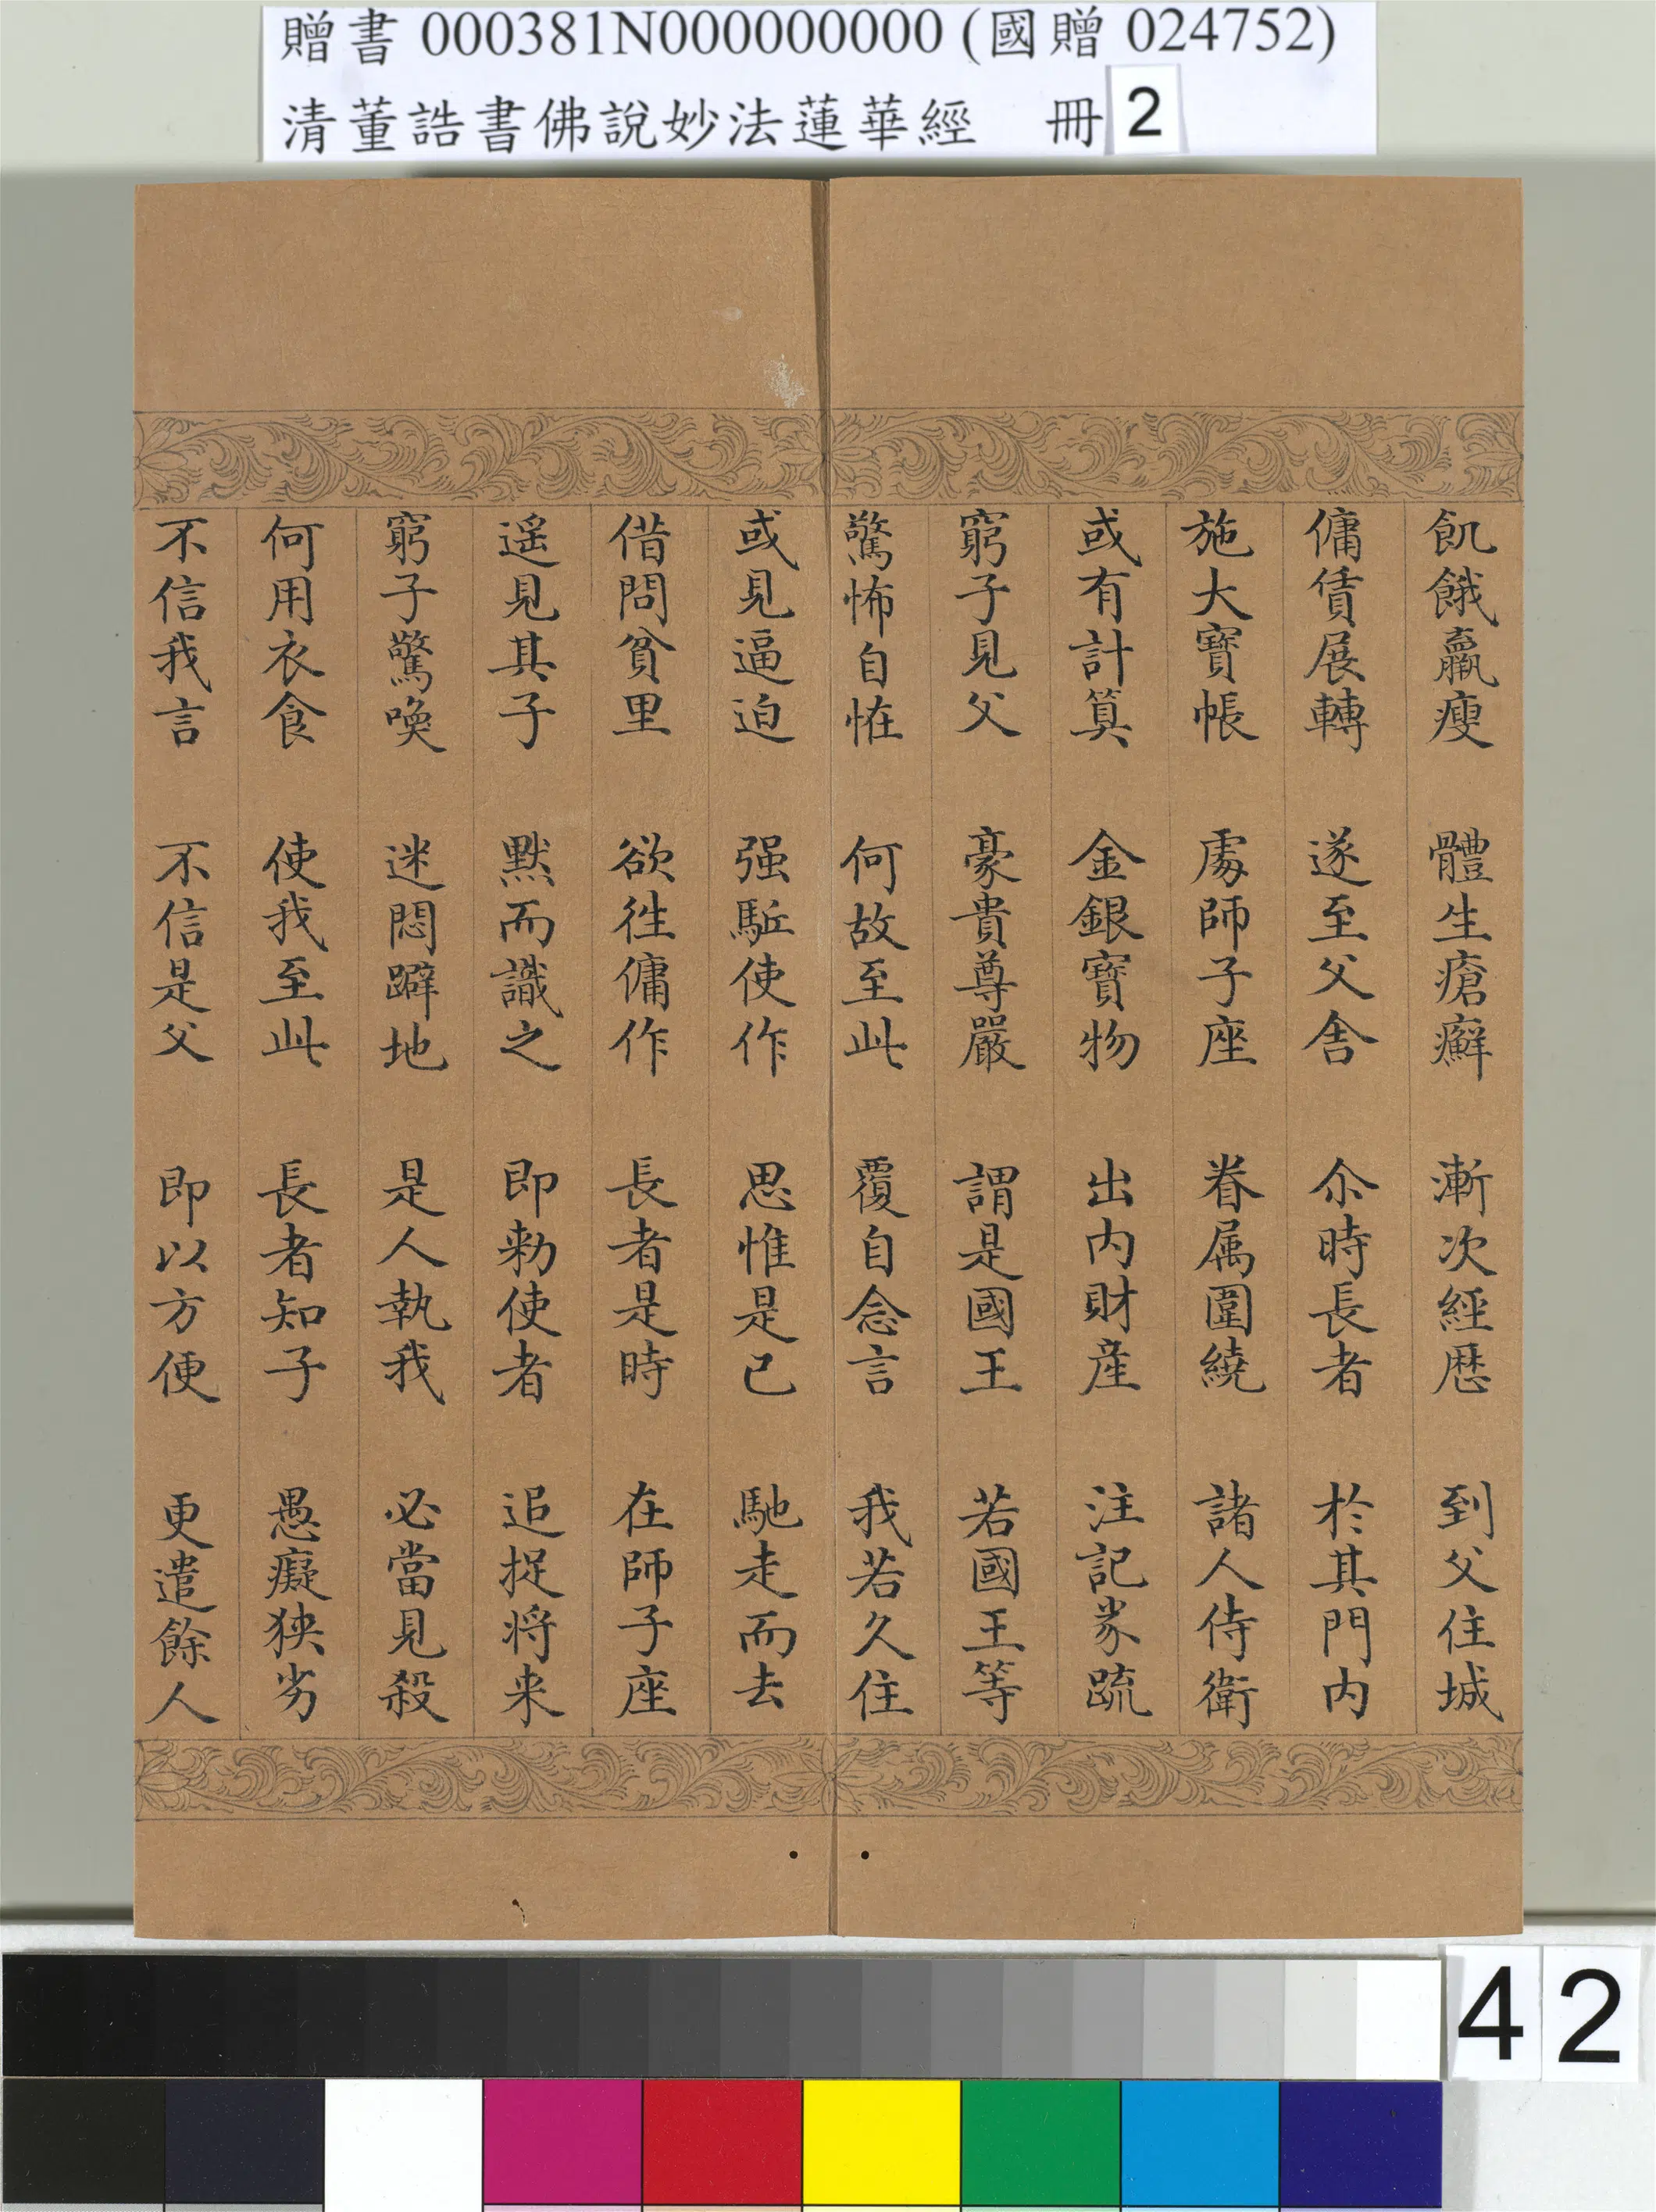 贈書 000381N000000000 (國贈 024752)
清董誥書佛說妙法蓮華經 冊 2
飢餓羸瘦 體生瘡癬 漸次經歷 到父住城
傭賃展轉 遂至父舍 尒時長者 於其門內
施大寶帳 處師子座 眷属圍繞 諸人侍衛
或有計算 金銀寶物 出內財產 注記券疏
窮子見父 豪貴尊嚴 謂是國王 若國王等
驚怖自恠 何故至此 覆自念言 我若久住
或見逼迫 强駈使作 思惟是已 馳走而去
借問貧里 欲往傭作 長者是時 在師子座
遥見其子 默而識之 即勑使者 追捉将来
窮子驚喚 迷悶躃地 是人執我 必當見殺
何用衣食 使我至此 長者知子 愚癡狹劣
不信我言 不信是父 即以方便 更遣餘人
42